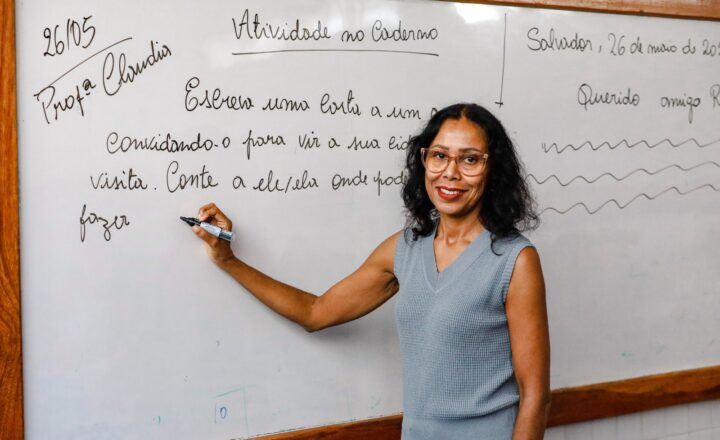 26/05
Profª Claudia
Atividade no Caderno
Escreva uma carta a um
convidando-o para vir a sua
visita. Conte a ele/ela onde
fazer
Salvador, 26 de maio de
Querido amigo
10